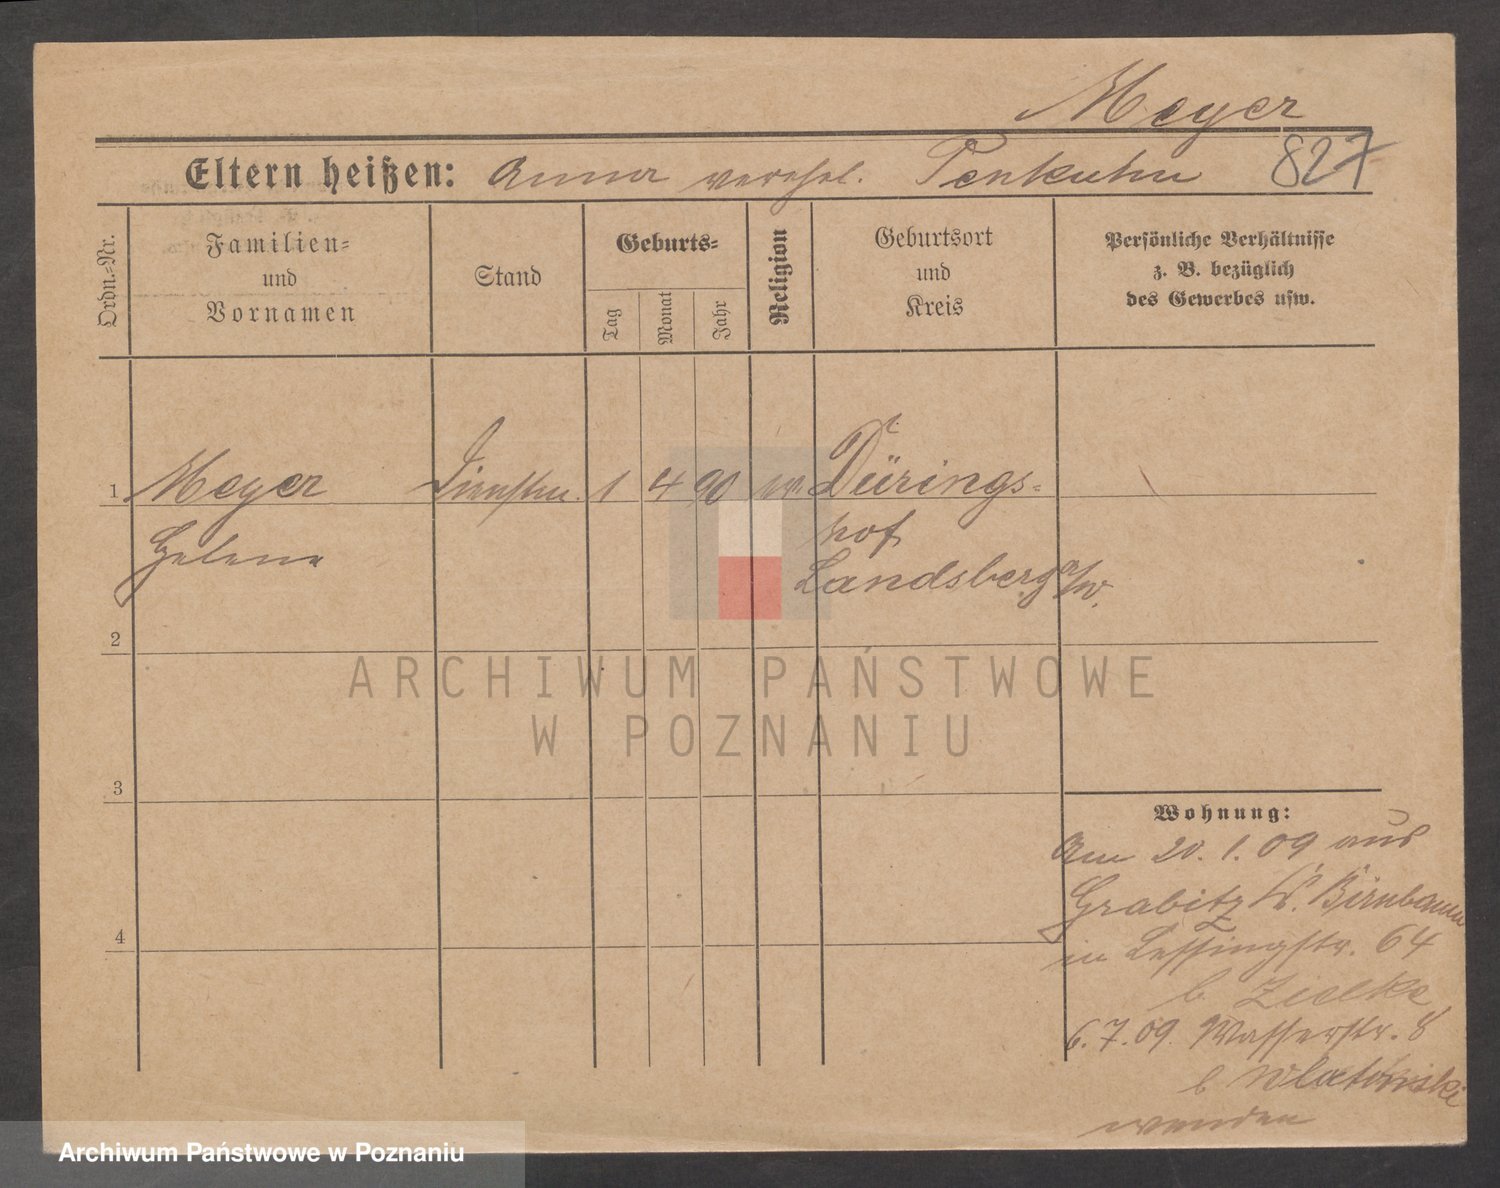 Meyer
Eltern heißen: Anna verehel. Penkuhn 827
Ordn.-Nr.
Familien-
und
Vornamen
Stand
Geburts-
Tag
Monat
Jahr
Religion
Geburtsort
und
Kreis
Persönliche Verhältnisse
z. B. bezüglich
des Gewerbes usw.
1 Meyer Dienstm. 1 4 90 ev. Dürings-
Helene hof
Landsberg a/W.
2
3
4
Wohnung:
Am 20.1.09 aus
Grabitz K. Birnbaum
in Lessingstr. 64
b Zielke
6.7.09. Wasserstr. 8
b
wenden
ARCHIWUM PAŃSTWOWE
W POZNANIU
Archiwum Państwowe w Poznaniu